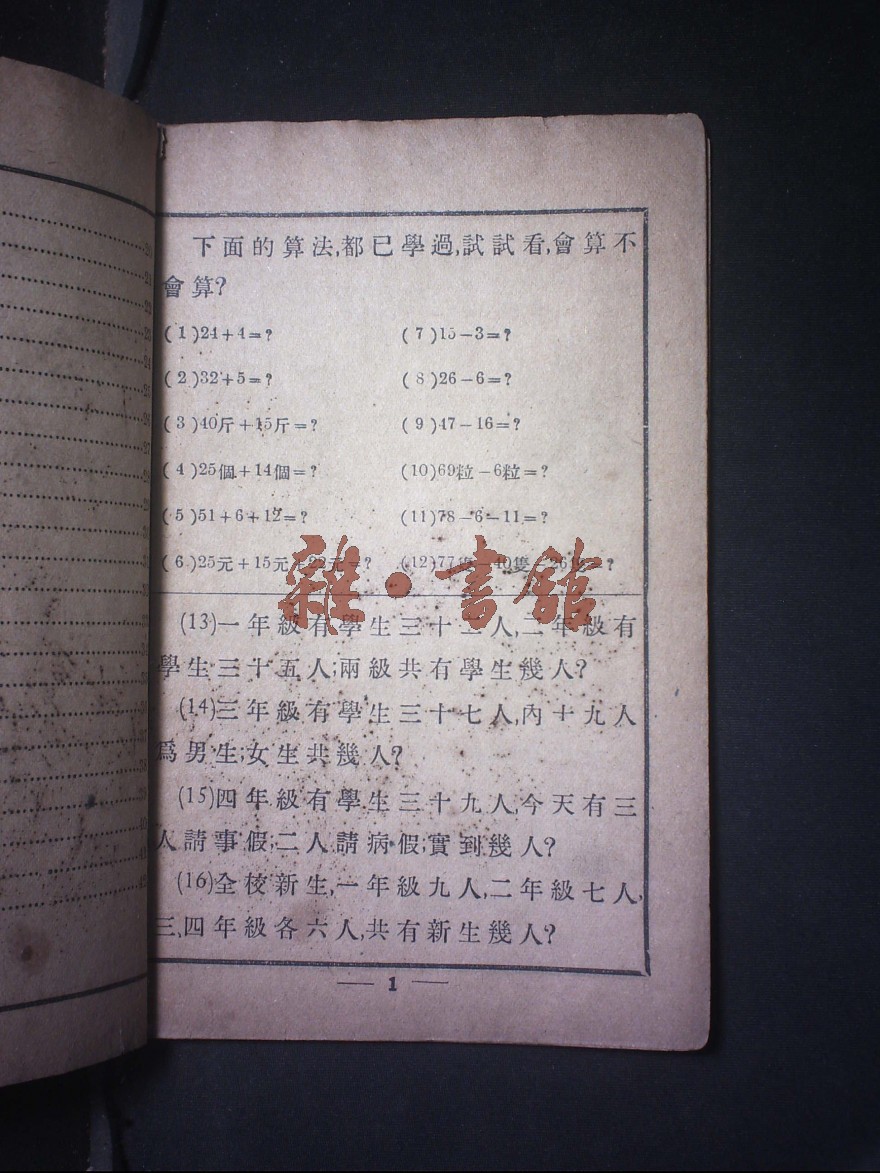 下面的算法,都已學過,試試看,會算不
會算?
(1)24+4=?
(2)32+5=?
(3)40斤+15斤=?
(4)25個+14個=?
(5)51+6+12=?
(6)25元+15元+22元=?
(7)15-3=?
(8)26-6=?
(9)47-16=?
(10)69粒-6粒=?
(11)78-6-11=?
(12)77隻-40隻-26隻=?
(13)一年級有學生三十二人,二年級有
學生三十五人;兩級共有學生幾人?
(14)三年級有學生三十七人,內十九人
爲男生;女生共幾人?
(15)四年級有學生三十九人,今天有三
人請事假;二人請病假;實到幾人?
(16)全校新生,一年級九人,二年級七人,
三,四年級各六人,共有新生幾人?
— 1 —
雜·書館